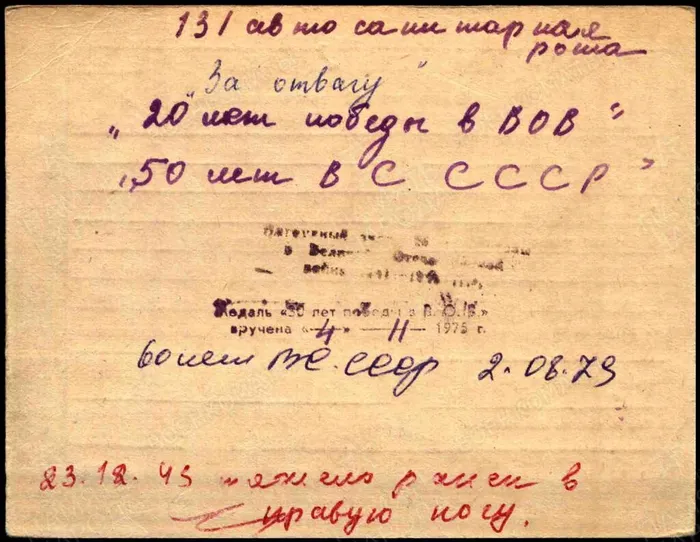 131 авто санитарная
рота
"За отвагу"
"20 лет победы в ВОВ"
"50 лет В С СССР"
в Великой Отечественной
войне
Медаль «30 лет победы в В.О.В.»
вручена «4» 11 1975 г.
60 лет ВС. СССР 2.08.79
23.12.43 тяжело ранен в
правую ногу.